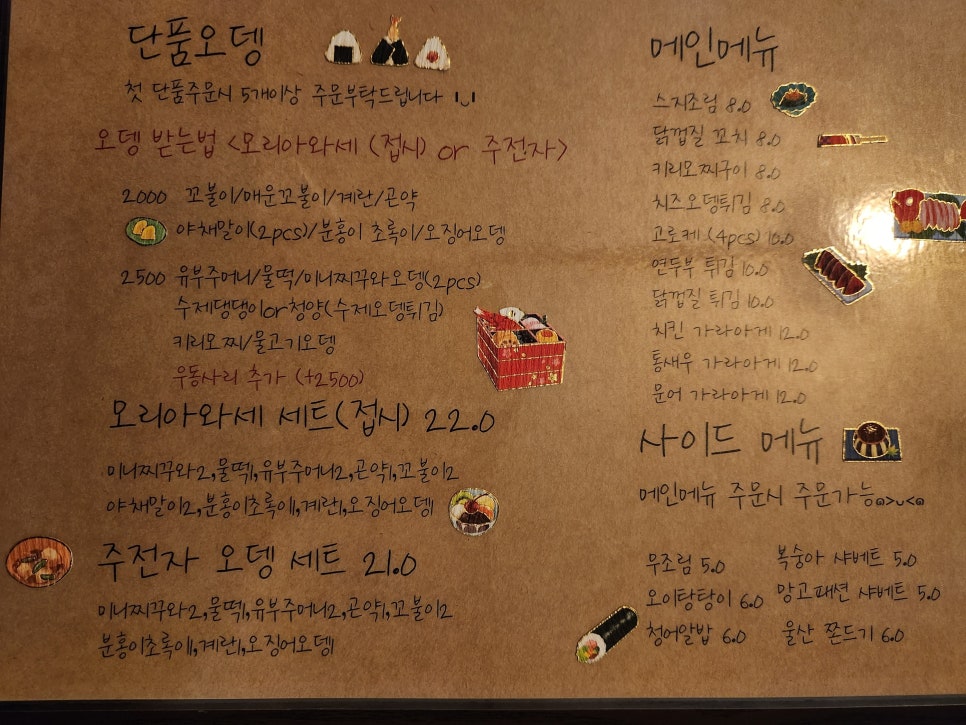 단품오뎅
첫 단품주문시 5개이상 주문부탁드립니다
오뎅 받는법 <모리아와세 (접시) or 주전자>
2000 꼬불이/매운꼬불이/계란/곤약
야채말이(2pcs)/분홍이 초록이/오징어오뎅
2500 유부주머니/물떡/미니찌꾸와오뎅(2pcs)
수제댕댕이or청양(수제오뎅튀김)
키리모찌/물고기오뎅
우동사리 추가 (+2500)
모리아와세 세트(접시) 22.0
미니찌꾸와2,물떡1,유부주머니2,곤약1,꼬불이2
야채말이2,분홍이초록이1,계란1,오징어오뎅1
주전자 오뎅 세트 21.0
미니찌꾸와2,물떡1,유부주머니2,곤약1,꼬불이2
분홍이초록이1,계란1,오징어오뎅1
메인메뉴
스지조림 8.0
닭껍질 꼬치 8.0
키리모찌구이 8.0
치즈오뎅튀김 8.0
고로케 (4pcs) 10.0
연두부 튀김 10.0
닭껍질 튀김 10.0
치킨 가라아게 12.0
통새우 가라아게 12.0
문어 가라아게 12.0
사이드 메뉴
메인메뉴 주문시 주문가능
무조림 5.0 복숭아 샤베트 5.0
오이탕탕이 6.0 망고패션 샤베트 5.0
청어알밥 6.0 울산 쫀드기 6.0